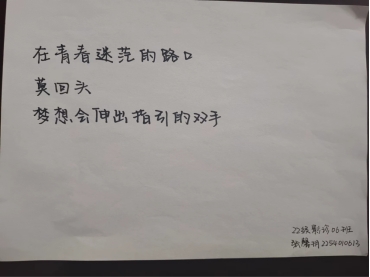 在青春迷茫的路口
莫回头
梦想会伸出指引的双手
22级影诊06班
2254010613